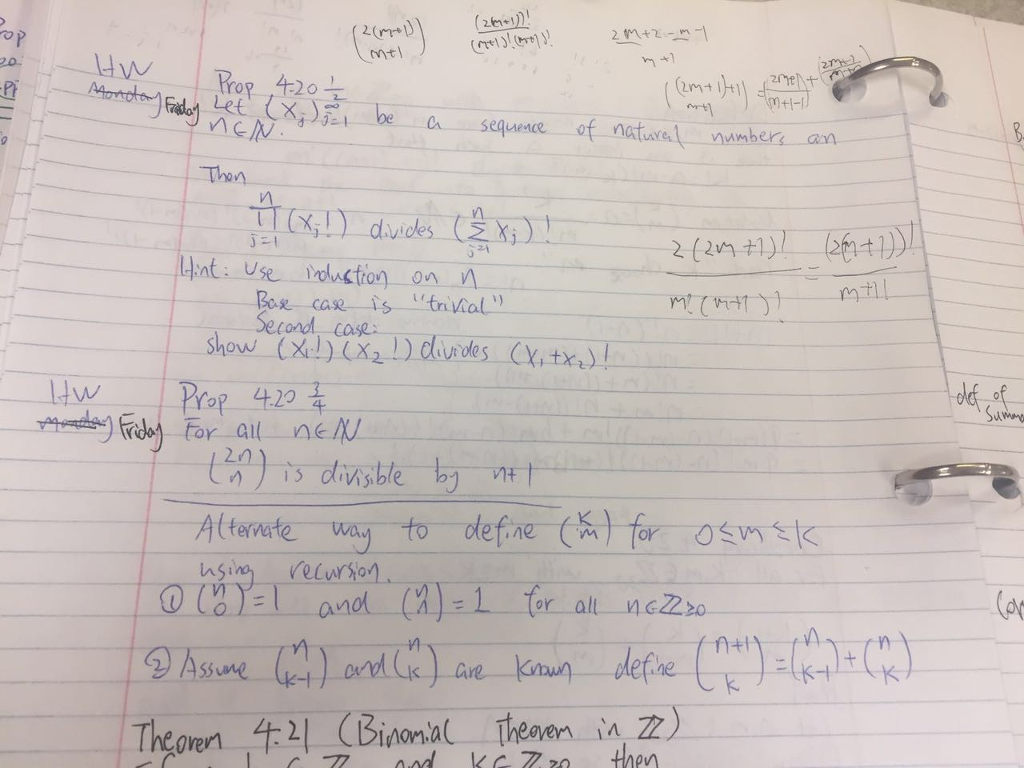 (2(m+1) m+1) (2(m+1))! / (m+1)!(m+1)! 2m+2-m-1
m+1
((2m+1)+1 m+1) = (2m+1 m+1-1) +
HW
Prop 4.20 1/2
Monday Friday Let (x_j)_{j=1}^∞ be a sequence of natural numbers an
n∈ℕ.
Then
∏_{j=1}^{n} (x_j!) divides (∑_{j=1}^{n} x_j)!
2(2m+1)! / m!(m+1)! = (2(m+1))! / m+1!
Hint: Use induction on n
Base case is "trivial"
Second case:
show (x_1!)(x_2!) divides (x_1+x_2)!
HW Prop 4.20 3/4
Monday Friday For all n∈ℕ
(2n n) is divisible by n+1
Alternate way to define (k m) for 0≤m≤k
using recursion.
① (n 0)=1 and (n n)=1 for all n∈ℤ≥0
② Assume (n k-1) and (n k) are known define (n+1 k) = (n k-1) + (n k)
Theorem 4.21 (Binomial Theorem in ℤ)
and k∈ℤ≥0 then
def of